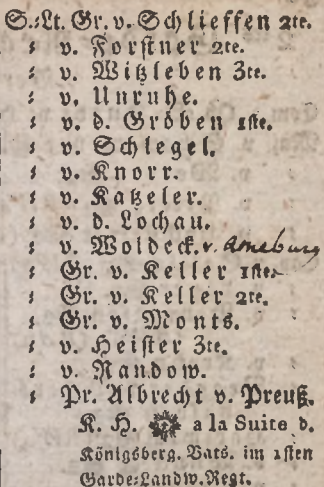 S.-Lt. Gr. v. Schlieffen 2te.
: v. Forstner 2te.
: v. Witzleben 3te.
: v. Unruhe.
: v. d. Gröben 1ste.
: v. Schlegel.
: v. Knorr.
: v. Katzeler.
: v. d. Lochau.
: v. Woldeck. v. Arneburg
: Gr. v. Keller 1ste.
: Gr. v. Keller 2te.
: Gr. v. Monts.
: v. Heister 3te.
: v. Randow.
: Pr. Albrecht v. Preuß.
K. H. a la Suite d.
Königsberg. Bats. im 1sten
Garde-Landw. Regt.